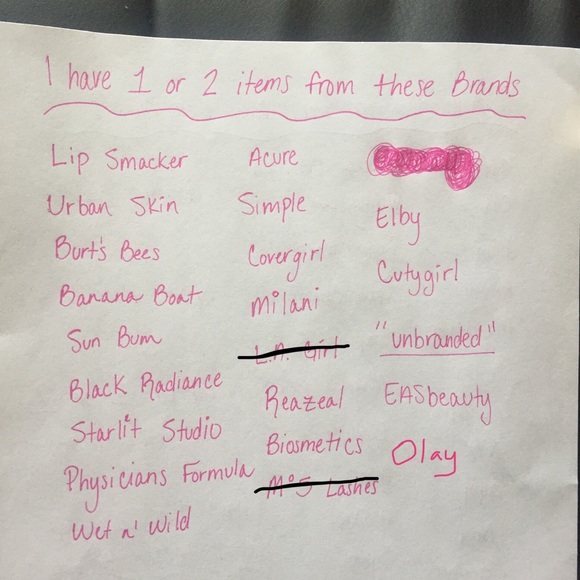 I have 1 or 2 items from these Brands
Lip Smacker
Urban Skin
Burt's Bees
Banana Boat
Sun Bum
Black Radiance
Starlit Studio
Physicians Formula
Wet n' Wild
Acure
Simple
Covergirl
Milani
L.A. Girl
Reazeal
Biosmetics
Lashes
Elby
Cutygirl
"unbranded"
EASbeauty
Olay